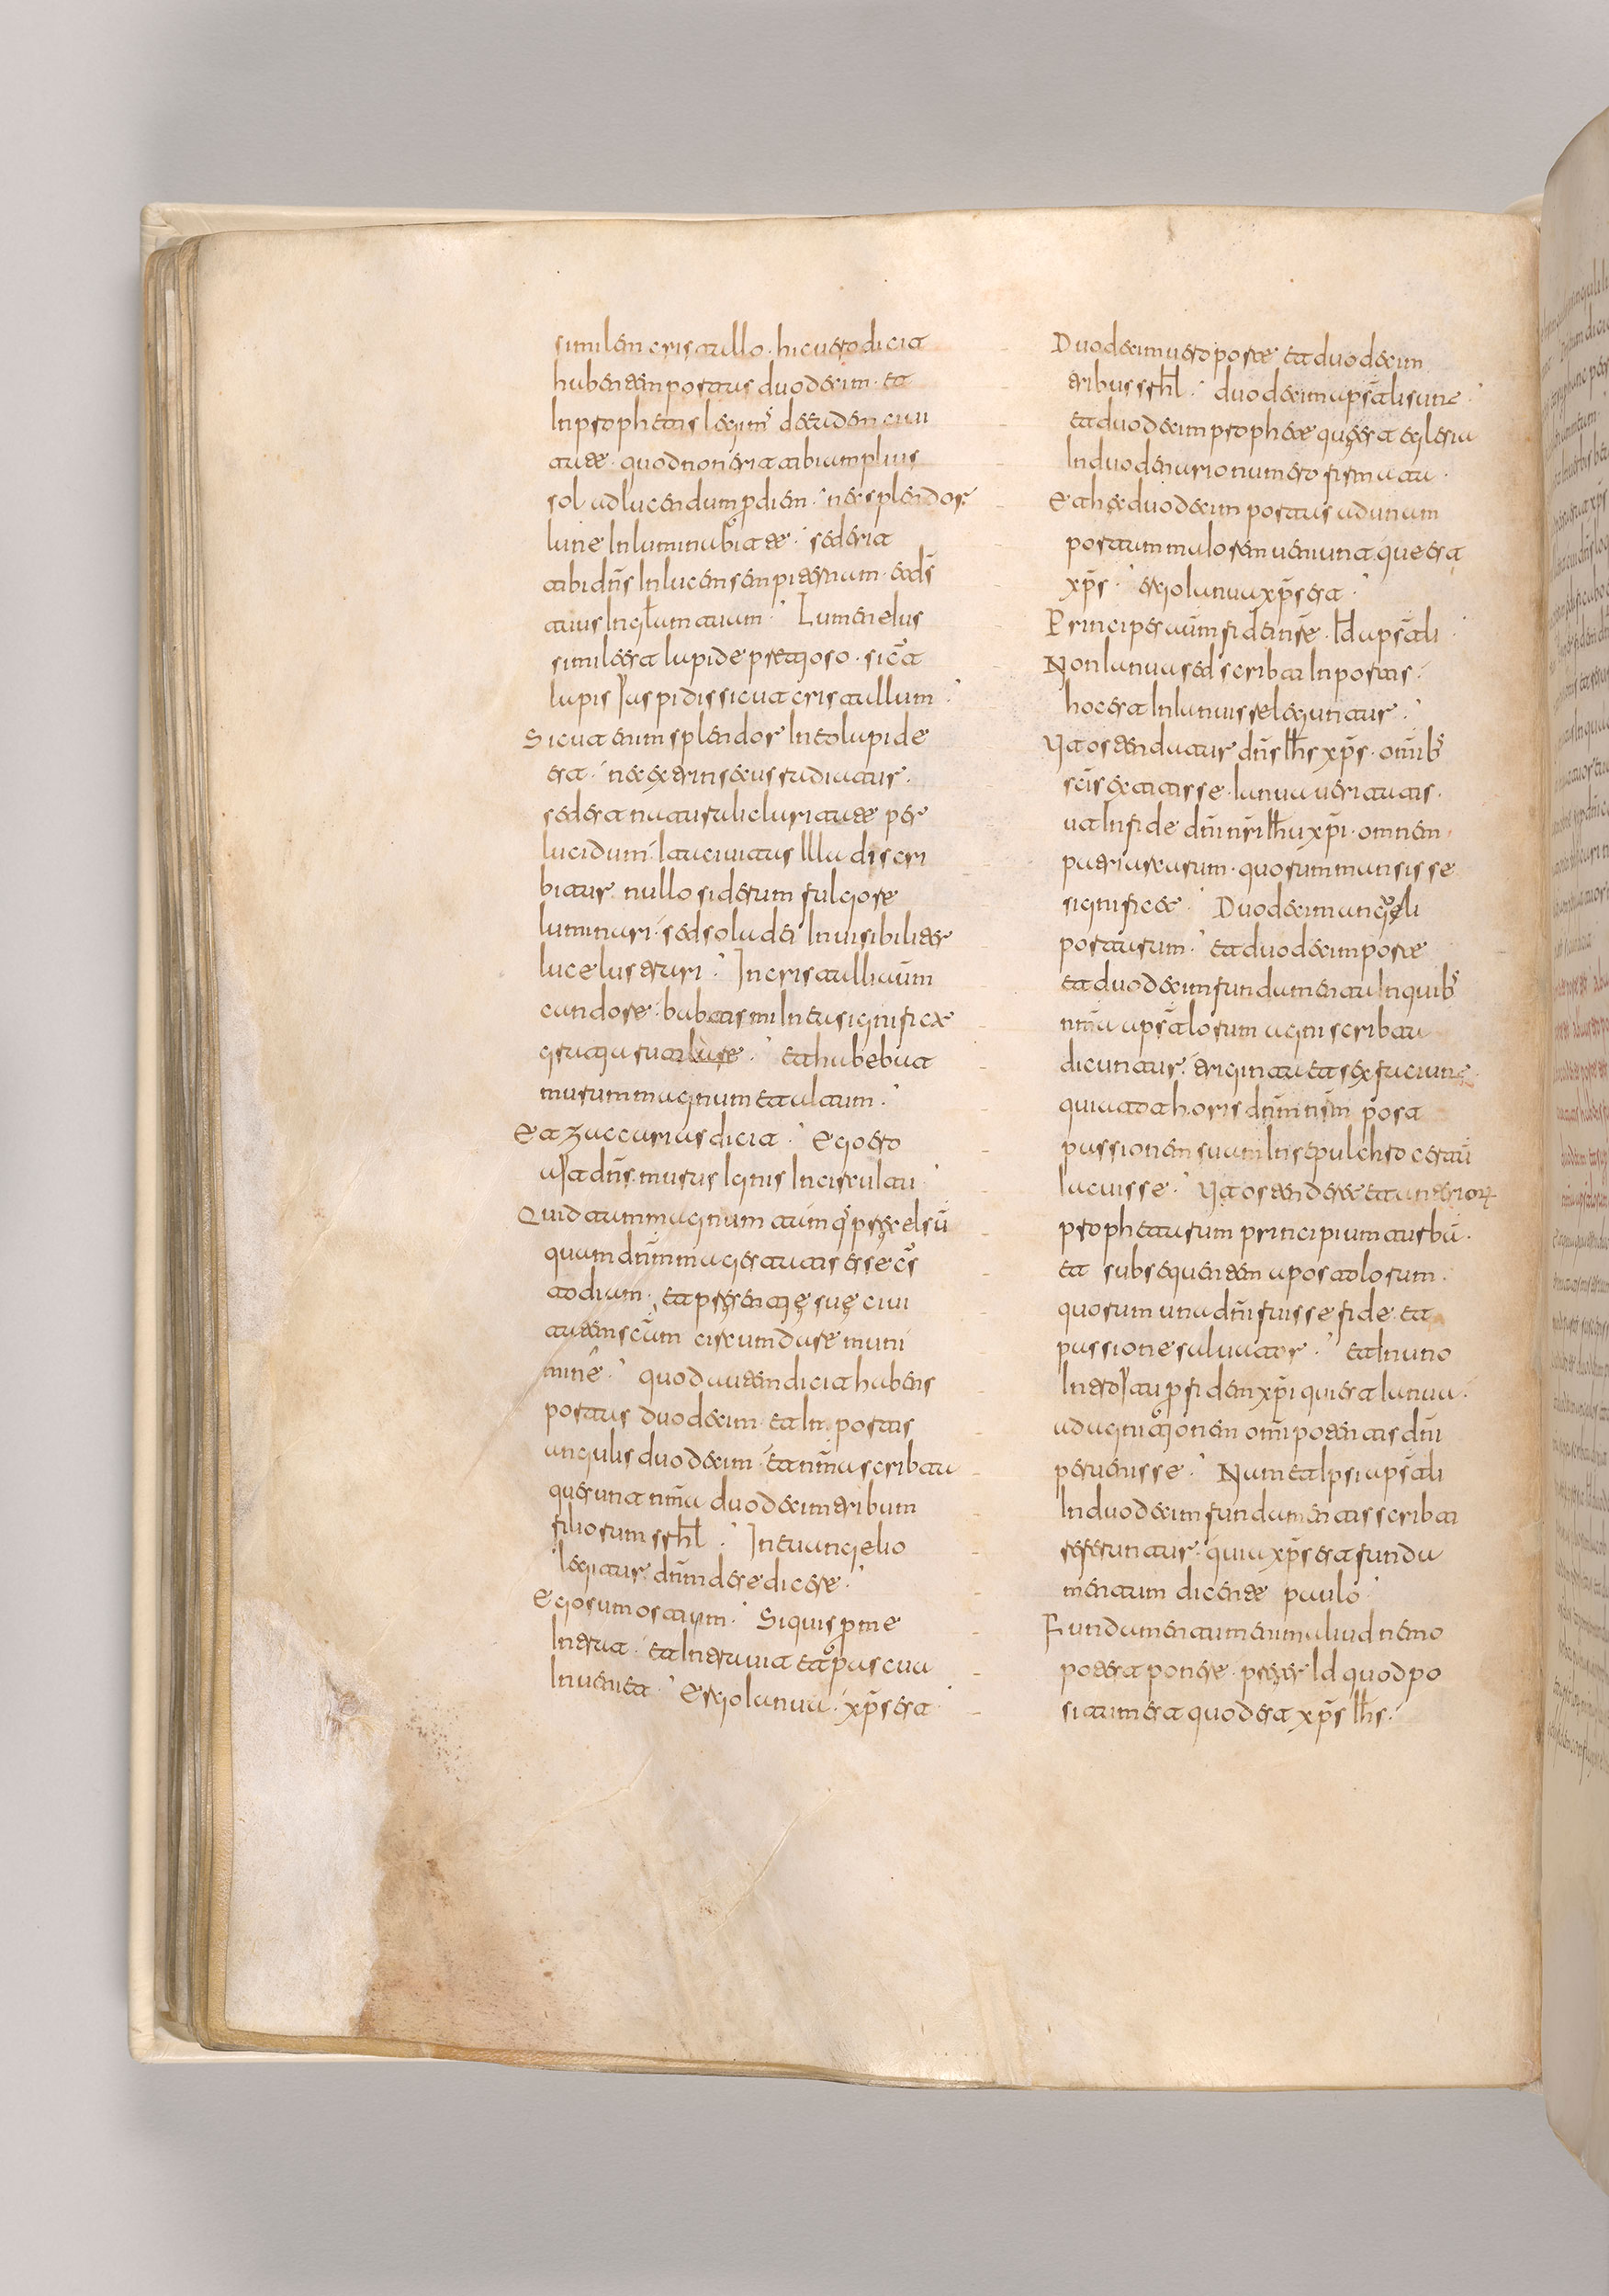 similem cristallo. hic uero dicit
habentem portas duodecim. et
In prophetis legim̄ de eadem ciui
tate. quod non erit tibi amplius
sol ad lucendum p̱ diem. nec splendor
lune Inluminabit te. sed erit
tibi dn̄s In lucem sempiternum. et ds̄
tuus In gl̄am tuam. Lumen eius
simile erat lapide pretioso. sicut
lapis Iaspidis sicut cristallum.
Sicut enim splendor In eo lapide
est. nec extrinsecus radiatur.
sed est naturali claritate per
lucidum. Ita ciuitas Illa discri
bitur nullo siderum fulgore
luminari. sed sola dei Inuisibiliter
luce lustrari. In cristallicum
candore. babtismi Intus significat
gratia rutilare. et habebat
murum magnum et altum.
Et zaccarias dicit. Ego ero
ait dn̄s. murus Ignis In circuitu
Quid tam magnum tamq̄ precelsū
quam dn̄m magestatis esse cūs
todiam. et presentię suę ciui
tatem sc̄am circumdare muni
mine. quod autem dicit habens
portas duodecim. et In portas
angulis duodecim. et nm̄a scribta
que sunt nm̄a duodecim tribum
filiorum srhl̄. In euangelio
legitur. dn̄m dere dicere.
Ego sum ostium. Siquis p̱ me
Intrat. et Intrauit et pascua
Inueniet. Ergo Ianua. xp̄s est.
Duodecim uero porte et duodecim
tribus srhl̄. duodecim aps̄tali sunt.
et duodecim prophete que est eglesia
In duodenario numero firmata.
Et hec duodecim portas ad unam
portam maiorem ueniunt. que est
xp̄s. ergo Ianua xp̄s est.
Principes autem fidei nsē. Id aps̄tali
Non Ianua sed scribti In portas.
hoc est In Ianuis se leguntur.
Ut ostenduatur dn̄s Ih̄s xp̄s. omib̄
sc̄is extitisse. Ianua ueritatis.
ut In fide dn̄i nsī Ih̄u xp̄i. omnem
patriarcarum. quorum mansisse
significet. Duodecim angeli
portarum. et duodecim porte
et duodecim fundamenta In quib̄
nm̄a aps̄talorum agni scribta
dicuntur. triginta et sex faciunt.
quia tot horis dn̄m nsm̄ post
passionem suam In sepulchro certū
Iacuisse. Ut ostenderet et anteriorꝝ
prophetarum principium turbā.
et subsequentem apostolorum.
quorum una dn̄i fuisse fide et
passione saluator. et In uno
Introitu p̱ fidem xp̄i qui est Ianua.
ad agnitionem omn̄ipotentis dn̄i
peruenisse. Nam et Ipsi aps̄tali
In duodecim fundamentis scribti
referuntur. quia xp̄s est funda
mentum dicente paulo.
Fundamentum enim aliud nemo
potest ponere. preter Id quod po
situm est quod est xp̄s Ih̄s.